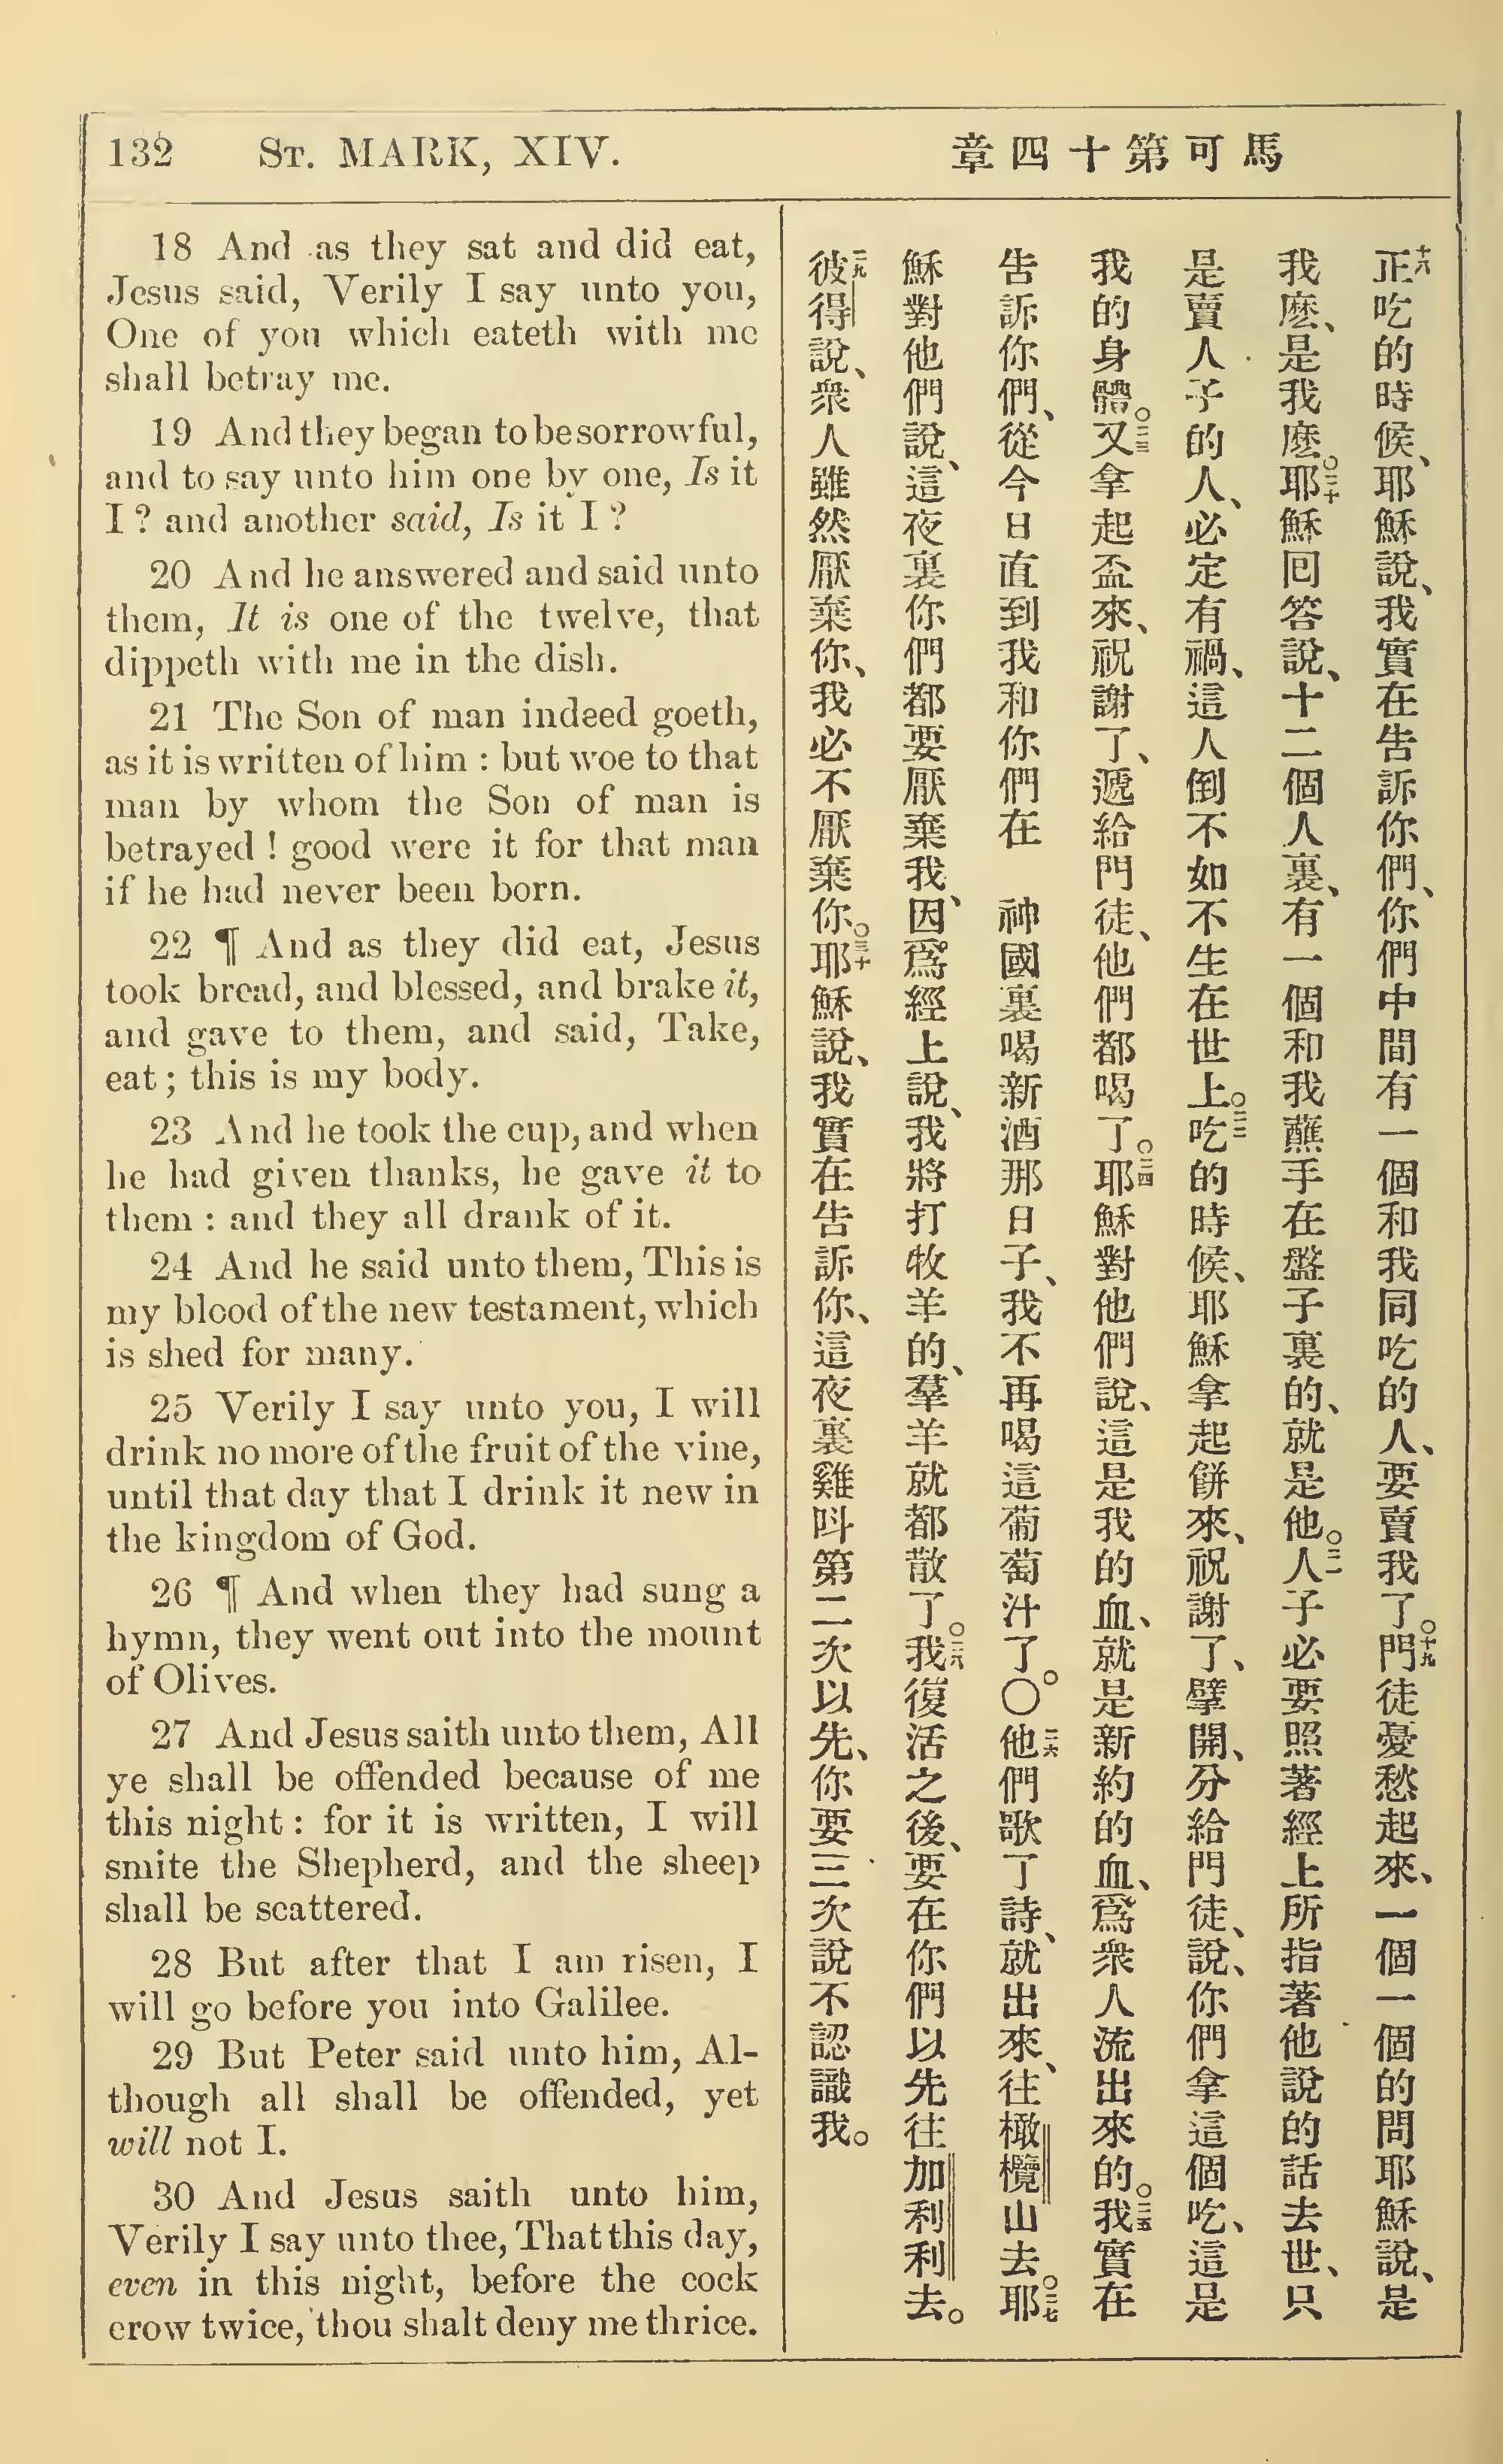 132 ST. MARK, XIV.
馬可第十四章
18 And as they sat and did eat,
Jesus said, Verily I say unto you,
One of you which eateth with me
shall betray me.
19 And they began to be sorrowful,
and to say unto him one by one, Is it
I? and another said, Is it I?
20 And he answered and said unto
them, It is one of the twelve, that
dippeth with me in the dish.
21 The Son of man indeed goeth,
as it is written of him : but woe to that
man by whom the Son of man is
betrayed! good were it for that man
if he had never been born.
22 ¶ And as they did eat, Jesus
took bread, and blessed, and brake it,
and gave to them, and said, Take,
eat; this is my body.
23 And he took the cup, and when
he had given thanks, he gave it to
them : and they all drank of it.
24 And he said unto them, This is
my blood of the new testament, which
is shed for many.
25 Verily I say unto you, I will
drink no more of the fruit of the vine,
until that day that I drink it new in
the kingdom of God.
26 ¶ And when they had sung a
hymn, they went out into the mount
of Olives.
27 And Jesus saith unto them, All
ye shall be offended because of me
this night: for it is written, I will
smite the Shepherd, and the sheep
shall be scattered.
28 But after that I am risen, I
will go before you into Galilee.
29 But Peter said unto him, Al-
though all shall be offended, yet
will not I.
30 And Jesus saith unto him,
Verily I say unto thee, That this day,
even in this night, before the cock
crow twice, thou shalt deny me thrice.
十八正吃的時候、耶穌說、我實在告訴你們、你們中間有一個和我同吃的人、要賣我了。十九門徒憂愁起來、一個一個的問耶穌說、是
我麽、是我麽。二十耶穌回答說、十二個人裏、有一個和我蘸手在盤子裏的、就是他。二一人子必要照著經上所指著他說的話去世、只
是賣人子的人、必定有禍、這人倒不如不生在世上。二二吃的時候、耶穌拿起餅來、祝謝了、擘開、分給門徒、說、你們拿這個吃、這是
我的身體。二三又拿起盃來、祝謝了、遞給門徒、他們都喝了。二四耶穌對他們說、這是我的血、就是新約的血、爲衆人流出來的。二五我實在
告訴你們、從今日直到我和你們在　神國裏喝新酒那日子、我不再喝這葡萄汁了。〇二六他們歌了詩、就出來、往橄欖山去。二七耶
穌對他們說、這夜裏你們都要厭棄我、因爲經上說、我將打牧羊的、羣羊就都散了。二八我復活之後、要在你們以先往加利利去。
二九彼得說、衆人雖然厭棄你、我必不厭棄你。三十耶穌說、我實在告訴你、這夜裏雞呌第二次以先、你要三次說不認識我。